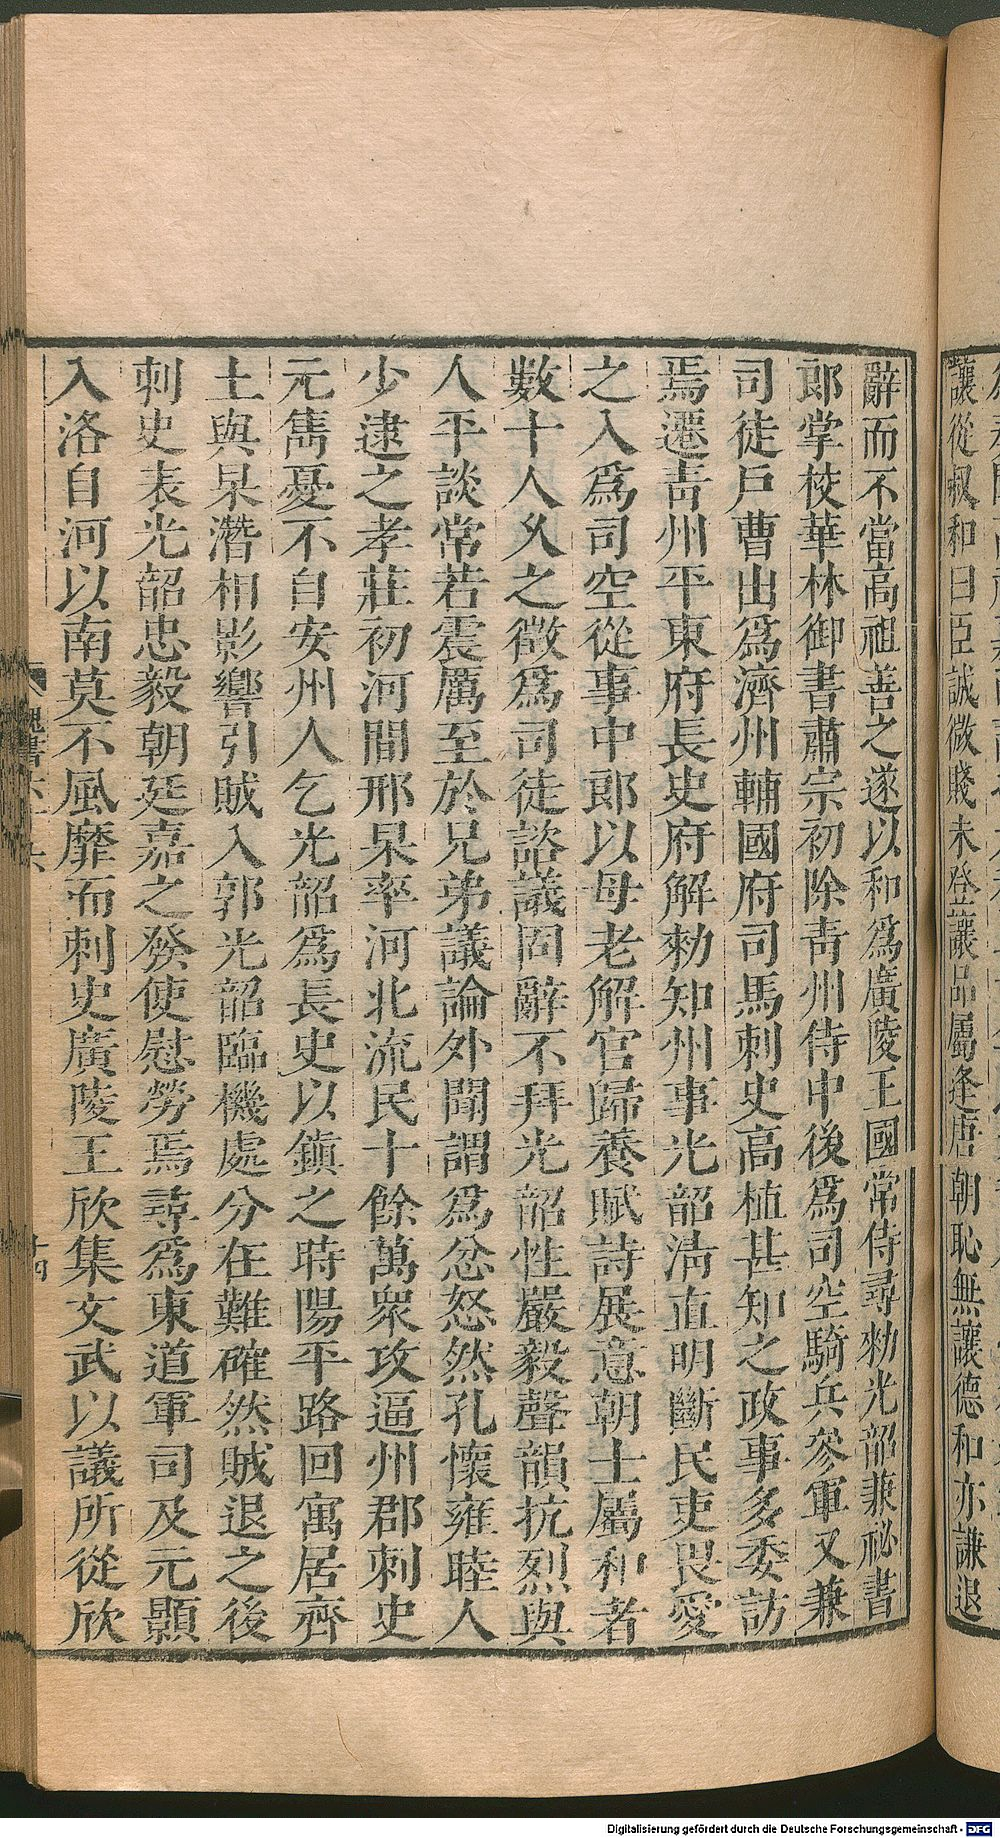 讓從叔和曰臣誠微賤未登讓品屬逢唐朝恥無讓德和亦謙退
辭而不當高祖善之遂以和爲廣陵王國常侍尋勑光韶兼祕書
郎掌校華林御書肅宗初除青州侍中後爲司空騎兵參軍又兼
司徒戶曹出爲濟州輔國府司馬刺史高植甚知之政事多委訪
焉遷青州平東府長史府解勑知州事光韶淸直明斷民吏畏愛
之入爲司空從事中郎以母老解官歸養賦詩展意朝士屬和者
數十人乆之徵爲司徒諮議固辭不拜光韶性嚴毅聲韻抗烈與
人平談常若震厲至於兄弟議論外聞謂爲忿怒然孔懷雍睦人
少逮之孝莊初河間邢杲率河北流民十餘萬衆攻逼州郡刺史
元雋憂不自安州人乞光韶爲長史以鎭之時陽平路回寓居齊
土與杲潛相影響引賊入郭光韶臨機處分在難確然賊退之後
刺史表光韶忠毅朝廷嘉之發使慰勞焉尋爲東道軍司及元顥
入洛自河以南莫不風靡而刺史廣陵王欣集文武以議所從欣
魏書六十六
十四
Digitalisierung gefördert durch die Deutsche Forschungsgemeinschaft - DFG